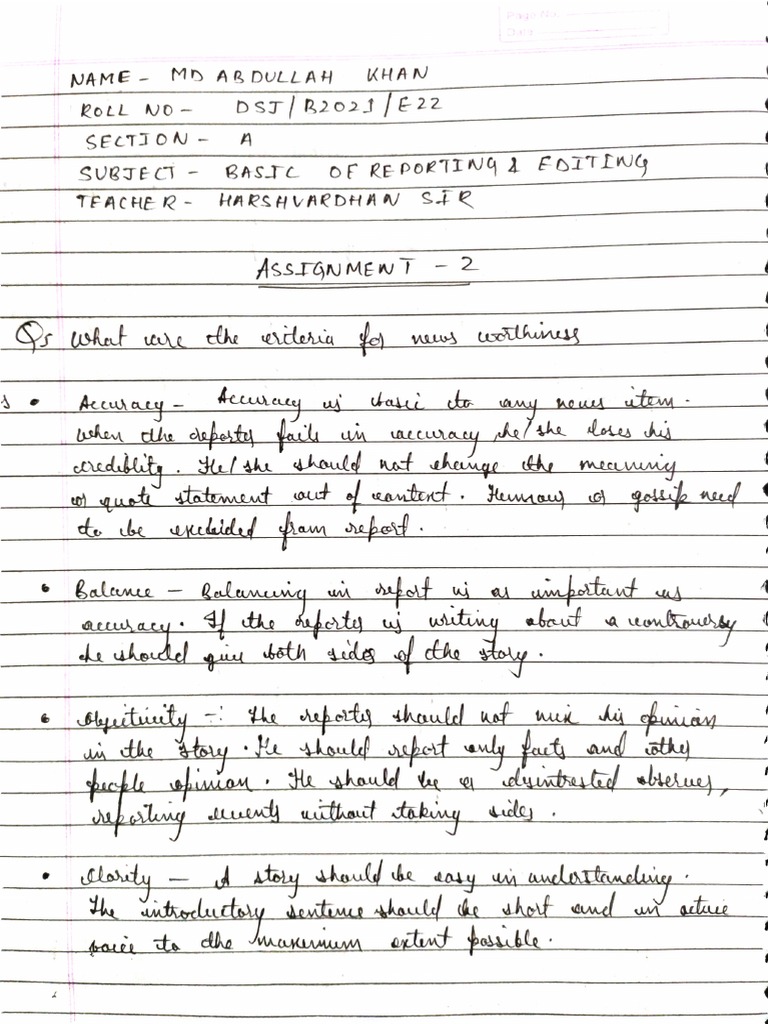 Page No.
Date
NAME - MD ABDULLAH KHAN
ROLL NO - DSJ/B2021/E22
SECTION - A
SUBJECT - BASIC OF REPORTING & EDITING
TEACHER - HARSHVARDHAN SIR
ASSIGNMENT - 2
Qs What are the criteria for news worthiness
s • Accuracy - Accuracy is basic to any news item.
When the reporter fails in accuracy, he/she loses his
crediblity. He/she should not change the meaning
or quote statement out of context. Humour or gossip need
to be excluded from report.
• Balance - Balancing in report is as important as
accuracy. If the reporter is writing about a controversy
he should give both sides of the story.
• Objectivity -: The reporter should not mix his opinion
in the story. He should report only facts and other
people opinion. He should be a disintrested observer,
reporting events without taking sides.
• Clarity - A story should be easy in understanding.
The introductory sentence should be short and in active
voice to the maximum extent possible.